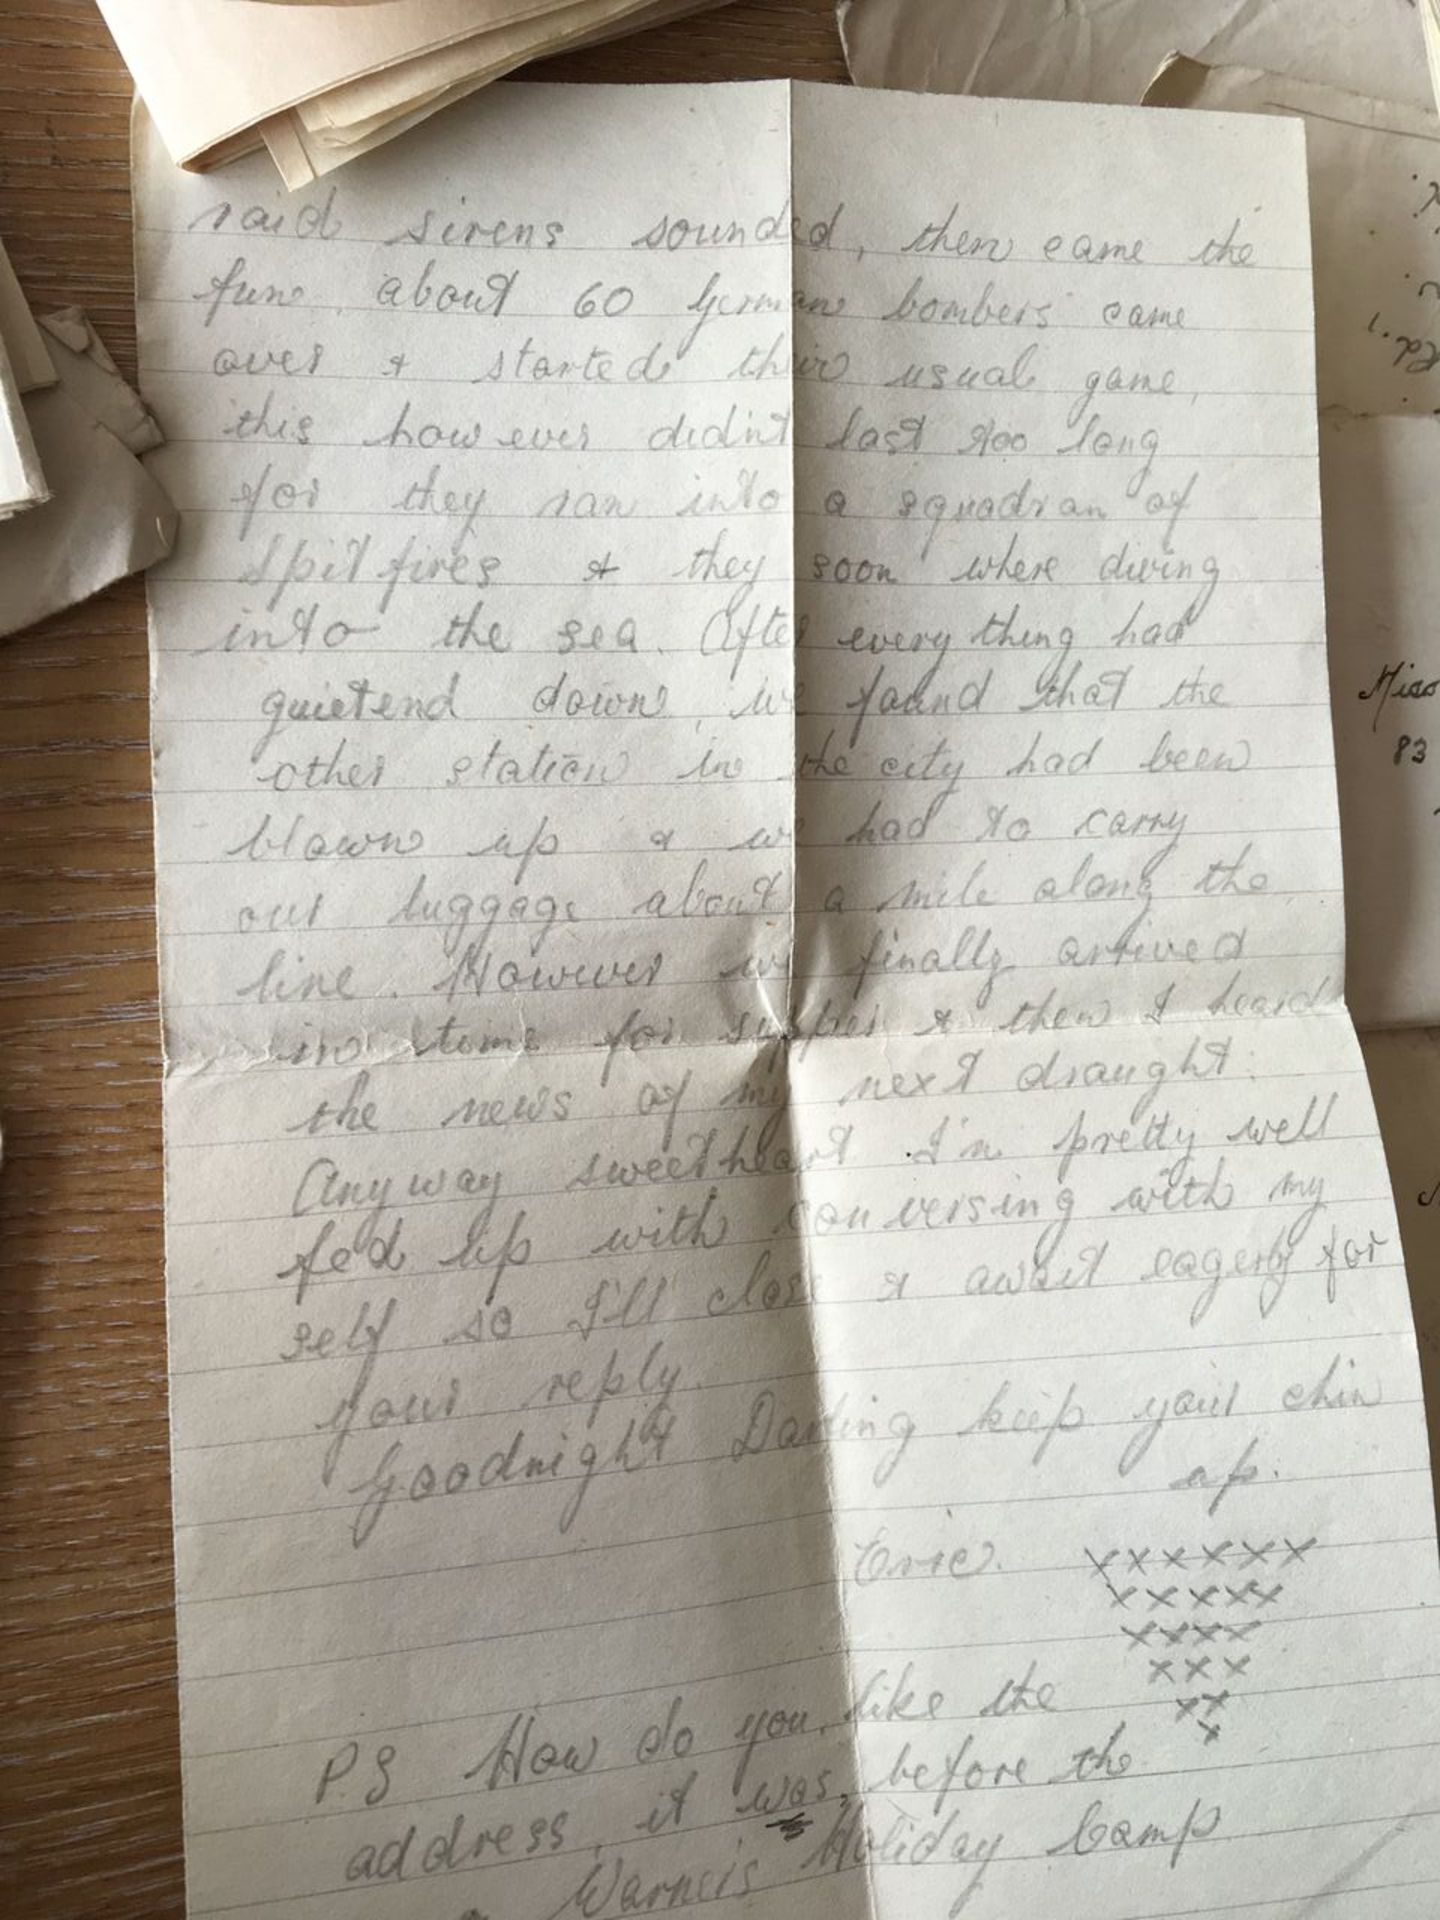 raid sirens sounded, then came the
fun. about 60 German bombers came
over & started their usual game,
this however didn't last too long
for they ran into a squadran of
spitfires & they soon where diving
into the sea. After everything had
quietend down, we found that the
other station in the city had been
blown up & we had to carry
our luggage about a mile along the
line. However we finally arrived
in time for supper & then I heard
the news of my next draught.
Anyway sweetheart I'm pretty well
fed up with conversing with my
self so I'll close & await eagerly for
your reply.
Goodnight Darling keep your chin
up.
Eric. xxxxxx
xxxxx
xxxx
xxx
xx
x
P.S How do you like the
address, it was, before the
Warners Holiday Camp
Miss
83